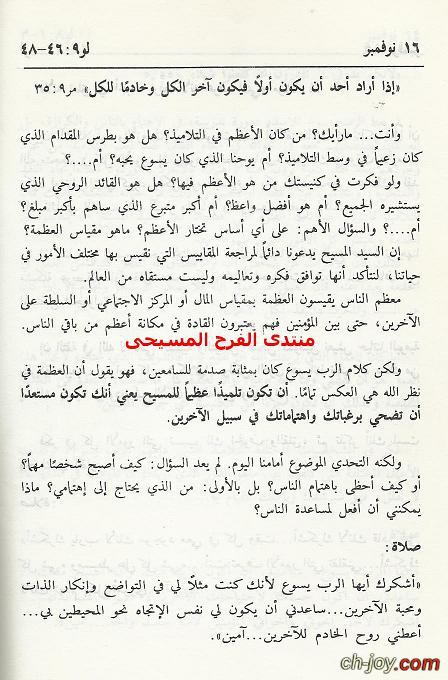 ١٦ نوفمبر
لو٩: ٤٦-٤٨
«إذا أراد أحد أن يكون أولًا فيكون آخر الكل وخادمًا للكل» مر٩: ٣٥
وأنت... مارأيك؟ من كان الأعظم في التلاميذ؟ هل هو بطرس المقدام الذي
كان زعيماً في وسط التلاميذ؟ أم يوحنا الذي كان يسوع يحبه؟ أم....؟
ولو فكرت في كنيستك من هو الأعظم فيها؟ هل هو القائد الروحي الذي
يستشيره الجميع؟ أم هو أفضل واعظ؟ أم أكبر متبرع الذي ساهم بأكبر مبلغ؟
أم....؟ والسؤال الأهم: على أي أساس تختار الأعظم؟ ماهو مقياس العظمة؟
إن السيد المسيح يدعونا دائماً لمراجعة المقاييس التي نقيس بها مختلف الأمور في
حياتنا، لنتأكد أنها توافق فكره وتعاليمه وليست مستقاه من العالم.
معظم الناس يقيسون العظمة بمقياس المال أو المركز الاجتماعي أو السلطة على
الآخرين، حتى بين المؤمنين فهم يعتبرون القادة في مكانة أعظم من باقي الناس.
منتدى الفرح المسيحى
ولكن كلام الرب يسوع كان بمثابة صدمة للسامعين، فهو يقول أن العظمة في
نظر الله هي العكس تمامًا. أن تكون تلميذًا عظيماً للمسيح يعني أنك تكون مستعدًا
أن تضحي برغباتك واهتماماتك في سبيل الآخرين.
ولكنه التحدي الموضوع أمامنا اليوم. لم يعد السؤال: كيف أصبح شخصًا مهماً؟
أو كيف أحظى باهتمام الناس؟ بل بالأولى: من الذي يحتاج إلى إهتمامي؟ ماذا
يمكنني أن أفعل لمساعدة الناس؟
صلاة:
«أشكرك أيها الرب يسوع لأنك كنت مثلًا لي في التواضع وإنكار الذات
ومحبة الآخرين...ساعدني أن يكون لي نفس الإتجاه نحو المحيطين بي...
أعطني روح الخادم للآخرين...آمين».
ch-joy.com